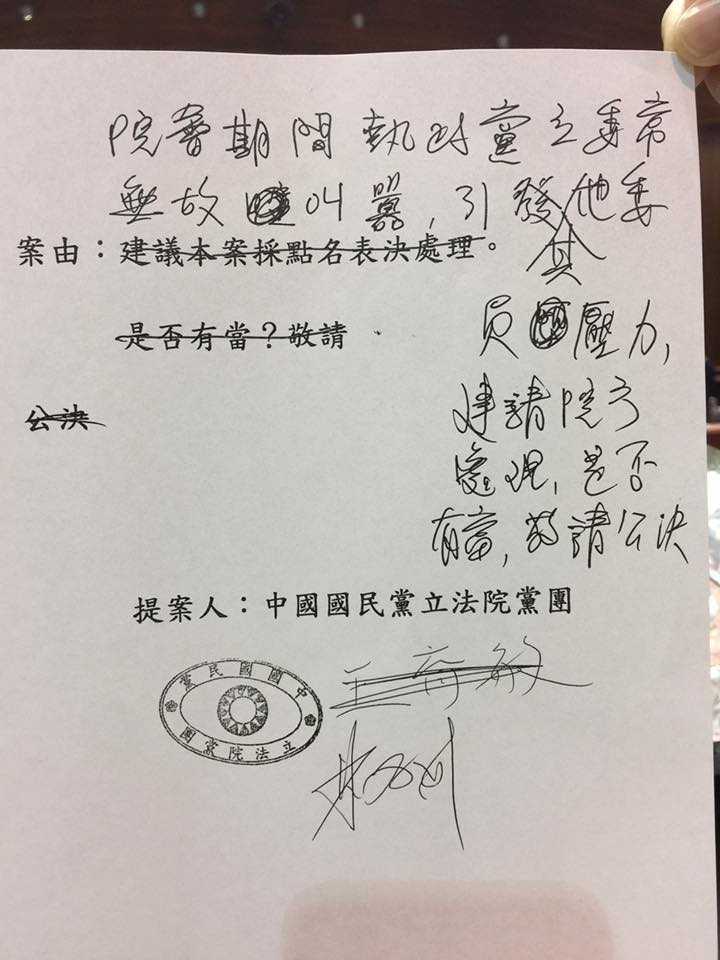 院會期間執政黨立委常
無故叫囂,引發他委
其
案由:建議本案採點名表決處理。
是否有當?敬請
員壓力,
公決
建請院方
處理,是否
有當,敬請公決
提案人:中國國民黨立法院黨團
王育敏
中國國民黨
立法院黨團